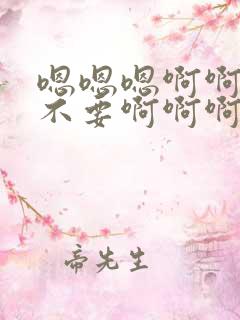 嗯嗯嗯啊啊
不要啊啊啊
帝先生